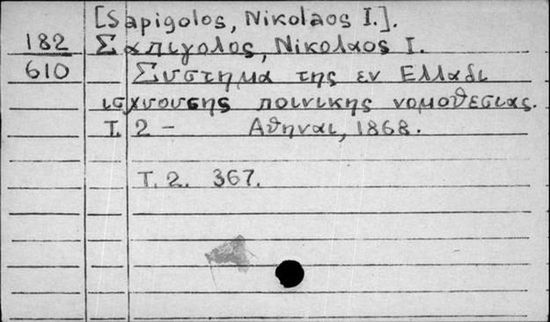 [Sapigolos, Nikolaos I.].
182
Σαπιγολος, Νικολαος Ι.
610
Συστημα της εν Ελλαδι
ισχυουσης ποινικης νομοθεσιας.
Τ. 2 - Αθηναι, 1868.
Τ. 2. 367.